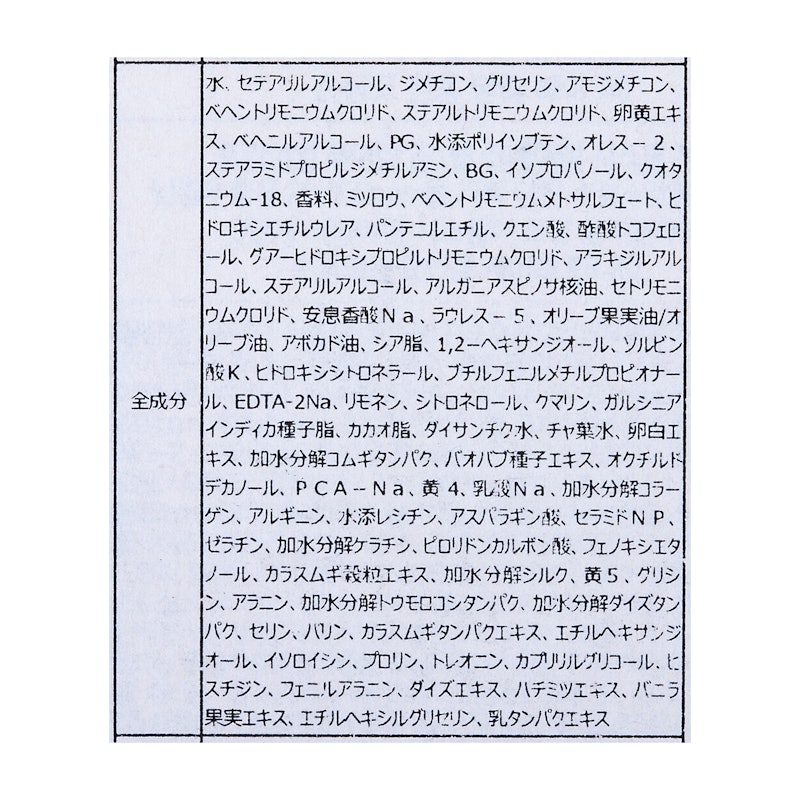 全成分
水、セテアリルアルコール、ジメチコン、グリセリン、アモジメチコン、
ベヘントリモニウムクロリド、ステアルトリモニウムクロリド、卵黄エキ
ス、ベヘニルアルコール、PG、水添ポリイソブテン、オレス－２、
ステアラミドプロピルジメチルアミン、BG、イソプロパノール、クオタ
ニウム-18、香料、ミツロウ、ベヘントリモニウムメトサルフェート、ヒ
ドロキシエチルウレア、パンテニルエチル、クエン酸、酢酸トコフェロ
ール、グアーヒドロキシプロピルトリモニウムクロリド、アラキジルアル
コール、ステアリルアルコール、アルガニアスピノサ核油、セトリモニ
ウムクロリド、安息香酸Ｎａ、ラウレス－５、オリーブ果実油/オ
リーブ油、アボカド油、シア脂、1,2－ヘキサンジオール、ソルビン
酸Ｋ、ヒドロキシシトロネラール、ブチルフェニルメチルプロピオナー
ル、EDTA-2Na、リモネン、シトロネロール、クマリン、ガルシニア
インディカ種子脂、カカオ脂、ダイサンチク水、チャ葉水、卵白エ
キス、加水分解コムギタンパク、バオバブ種子エキス、オクチルド
デカノール、ＰＣＡ－Ｎａ、黄４、乳酸Ｎａ、加水分解コラー
ゲン、アルギニン、水添レシチン、アスパラギン酸、セラミドＮＰ、
ゼラチン、加水分解ケラチン、ピロリドンカルボン酸、フェノキシエタ
ノール、カラスムギ穀粒エキス、加水分解シルク、黄５、グリシ
ン、アラニン、加水分解トウモロコシタンパク、加水分解ダイズタン
パク、セリン、バリン、カラスムギタンパクエキス、エチルヘキサンジ
オール、イソロイシン、プロリン、トレオニン、カプリリルグリコール、ヒ
スチジン、フェニルアラニン、ダイズエキス、ハチミツエキス、バニラ
果実エキス、エチルヘキシルグリセリン、乳タンパクエキス